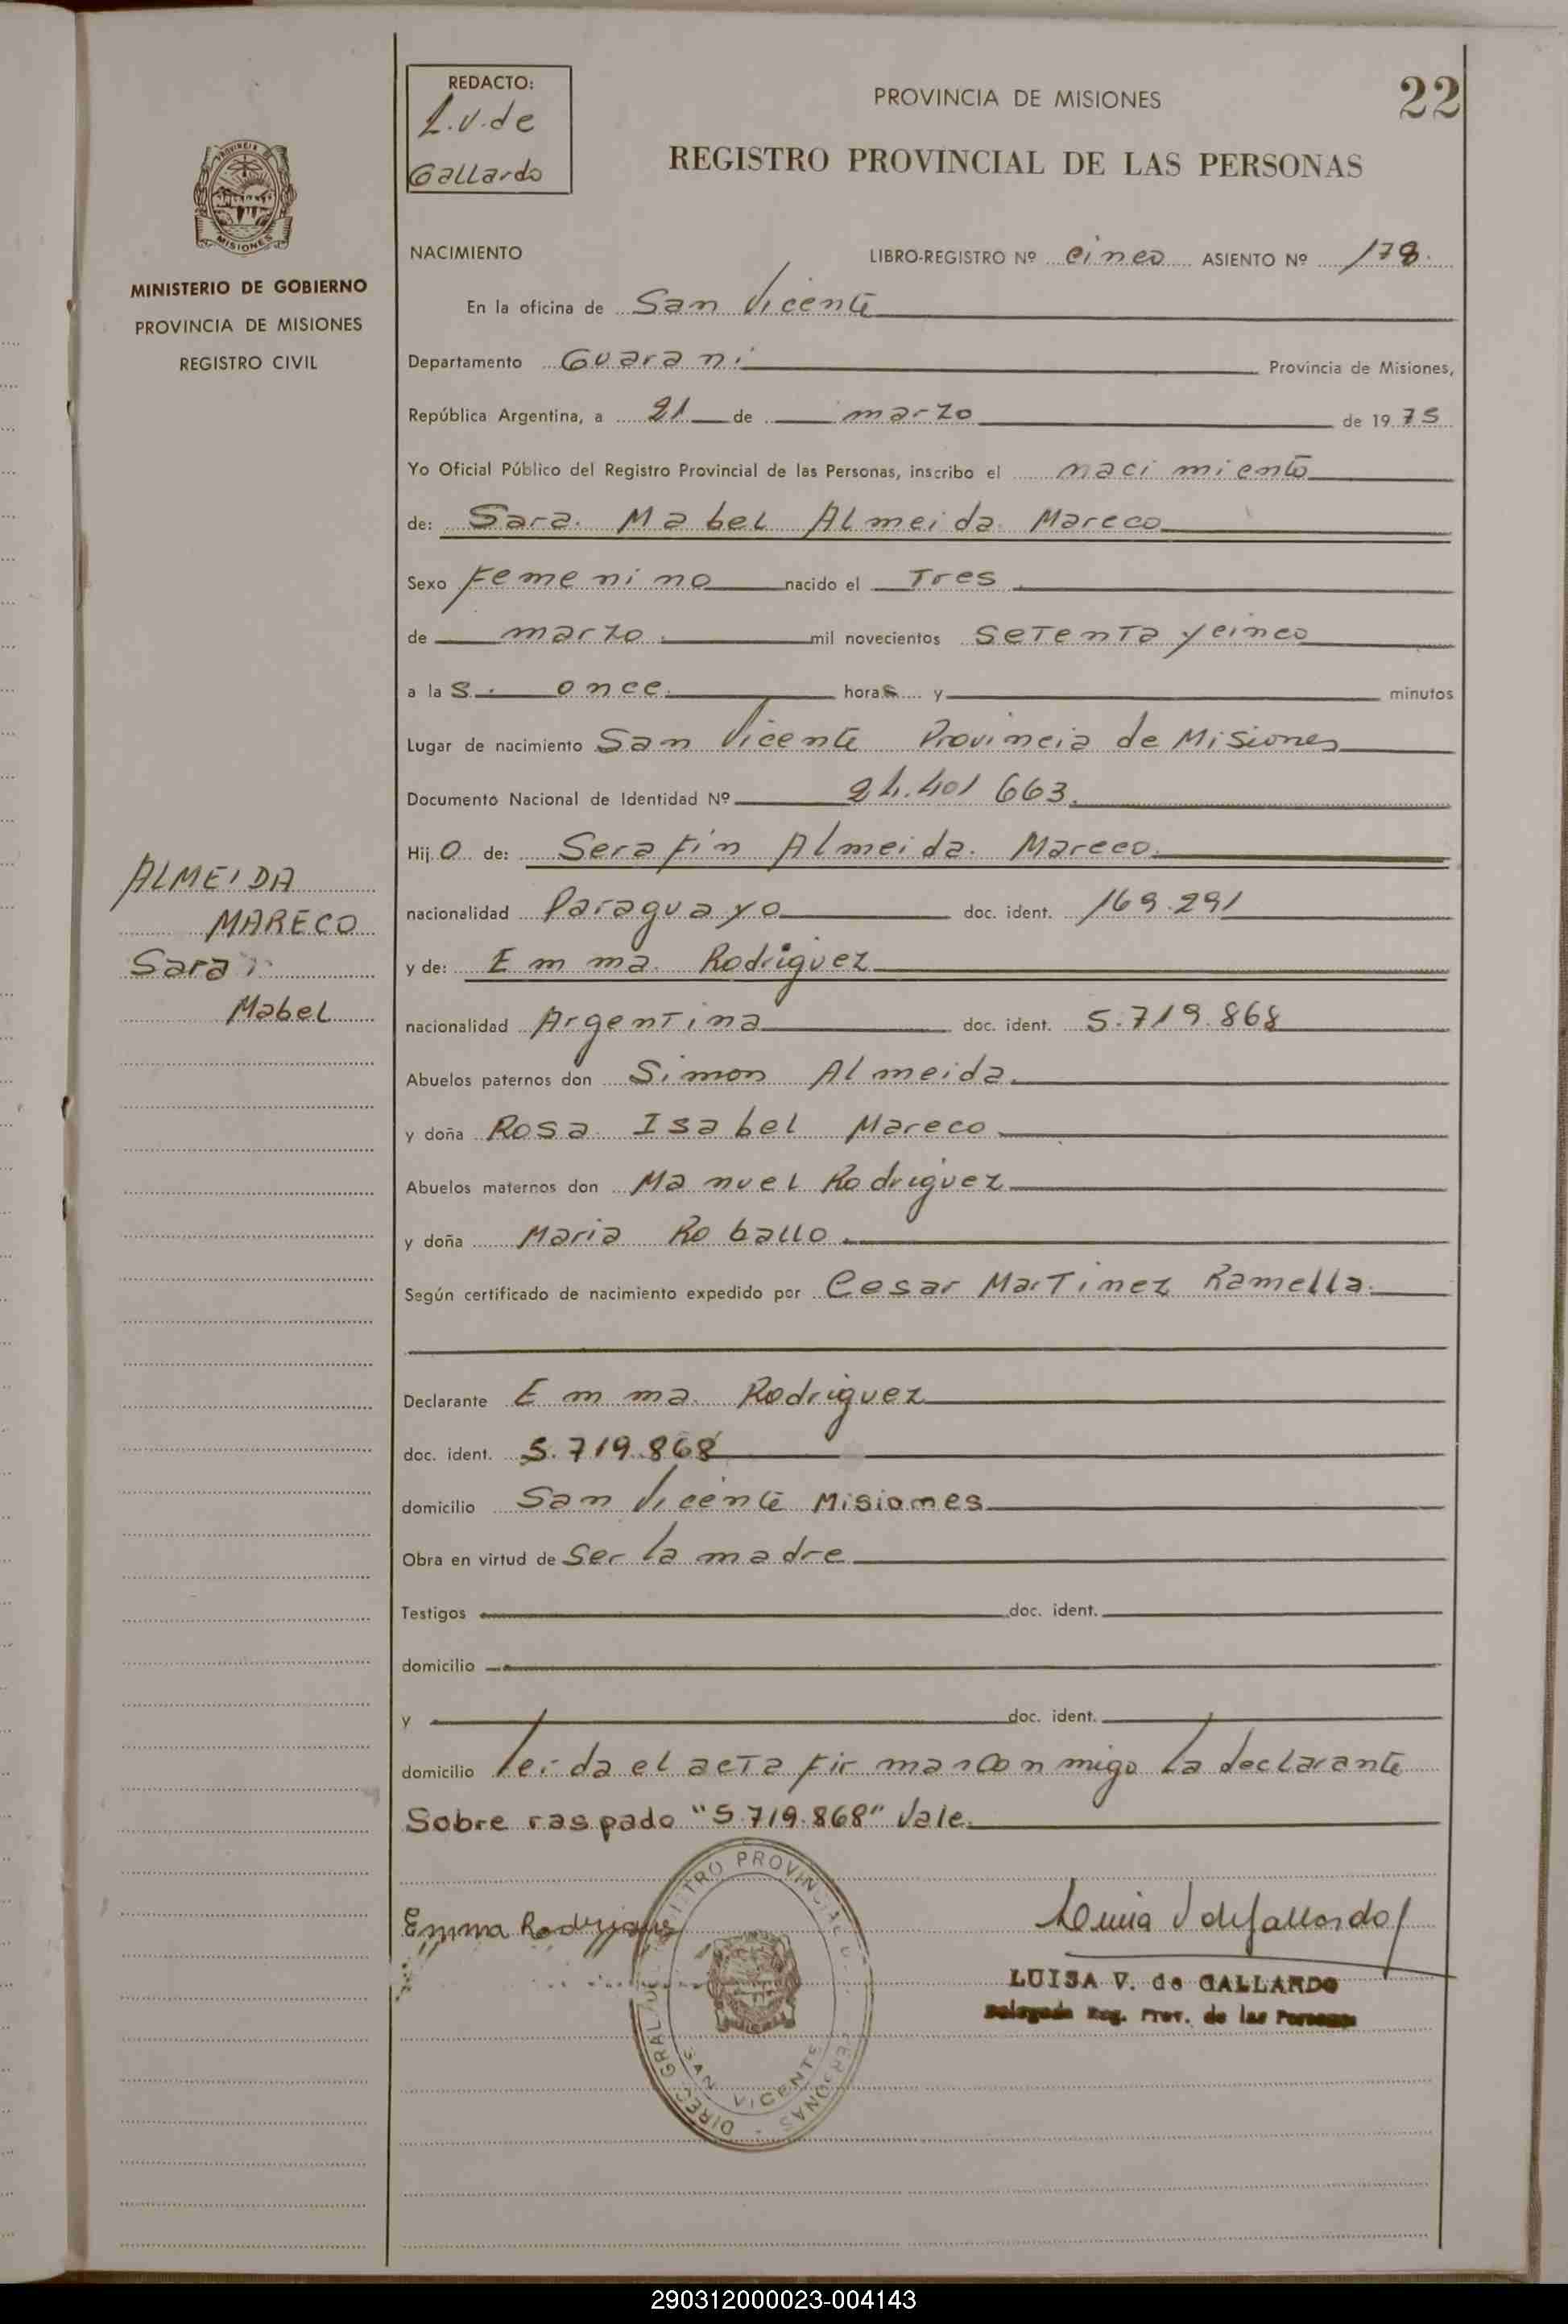 22
REDACTO:
L.V. de
Gallardo
PROVINCIA DE MISIONES
REGISTRO PROVINCIAL DE LAS PERSONAS
PROVINCIA DE
MISIONES
MINISTERIO DE GOBIERNO
PROVINCIA DE MISIONES
REGISTRO CIVIL
NACIMIENTO LIBRO-REGISTRO Nº cinco ASIENTO Nº 178.
En la oficina de San Vicente
Departamento Guarani Provincia de Misiones,
República Argentina, a 21 de marzo de 1975
Yo Oficial Público del Registro Provincial de las Personas, inscribo el nacimiento
de: Sara Mabel Almeida Mareco
Sexo Femenino nacido el Tres
de marzo mil novecientos setenta y cinco
a las once horas y minutos
Lugar de nacimiento San Vicente Provincia de Misiones
Documento Nacional de Identidad Nº 24.401 663.
Hijo de: Serafin Almeida Mareco.
nacionalidad Paraguayo doc. ident. 169.291
y de: Emma Rodriguez
nacionalidad Argentina doc. ident. 5.719.868
Abuelos paternos don Simon Almeida
y doña Rosa Isabel Mareco
Abuelos maternos don Manuel Rodriguez
y doña Maria Roballo.
Según certificado de nacimiento expedido por Cesar Martinez Ramella.
Declarante Emma Rodriguez
doc. ident. 5.719.868
domicilio San Vicente Misiones
Obra en virtud de ser la madre
Testigos doc. ident.
domicilio
y doc. ident.
domicilio leida el acta firman conmigo la declarante
Sobre raspado "5.719.868" Vale.
ALMEIDA
MARECO
Sara
Mabel
Emma Rodrigues
DIREC. GRAL. DEL REGISTRO PROVINCIAL DE PERSONAS
SAN VICENTE
Luisa V de Gallardo
LUISA V. de GALLARDO
Delegada Reg. Prov. de las Personas
290312000023-004143